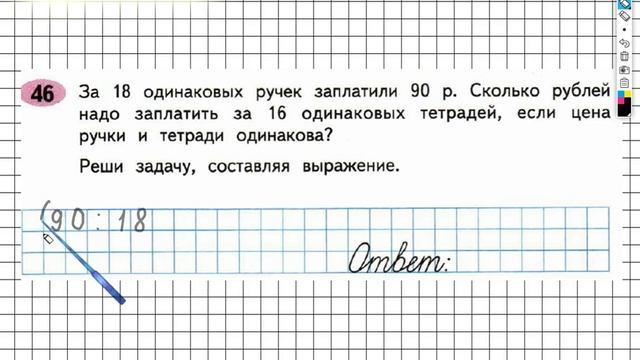 46 За 18 одинаковых ручек заплатили 90 р. Сколько рублей
надо заплатить за 16 одинаковых тетрадей, если цена
ручки и тетради одинакова?
Реши задачу, составляя выражение.
(90:18
Ответ: